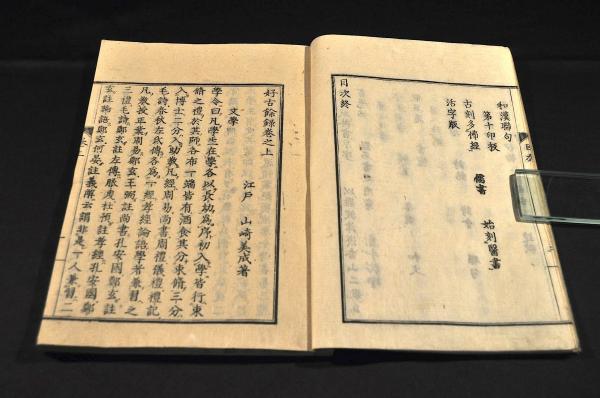 和漢聯句
第十印板
古刻多佛經 儒書 始刻醫書
活字版
目次終
好古餘錄卷之上
江戶 山崎美成著
文學
學令曰凡學生在學各以長幼爲序初入學皆行束
脩之禮於其師各布一端皆有酒食其分束脩三分
入博士二分入助教凡經周易尚書周禮儀禮禮記
毛詩春秋左氏傳各爲一經孝經論語學者兼習之
凡教授正業周易鄭玄王弼註尚書孔安國鄭玄註
三禮毛詩鄭玄註左傳服虔杜預註孝經孔安國鄭
玄註論語鄭玄何晏註義解云謂非是一人兼習二